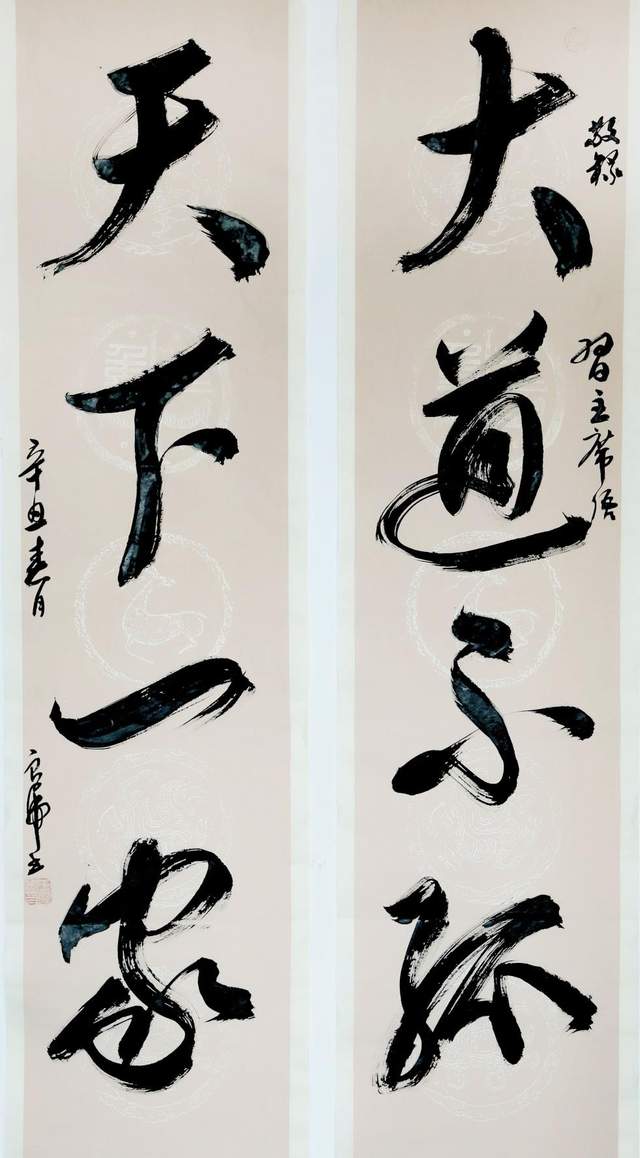 敬录
习主席语
大道不孤
天下一家
辛丑春月